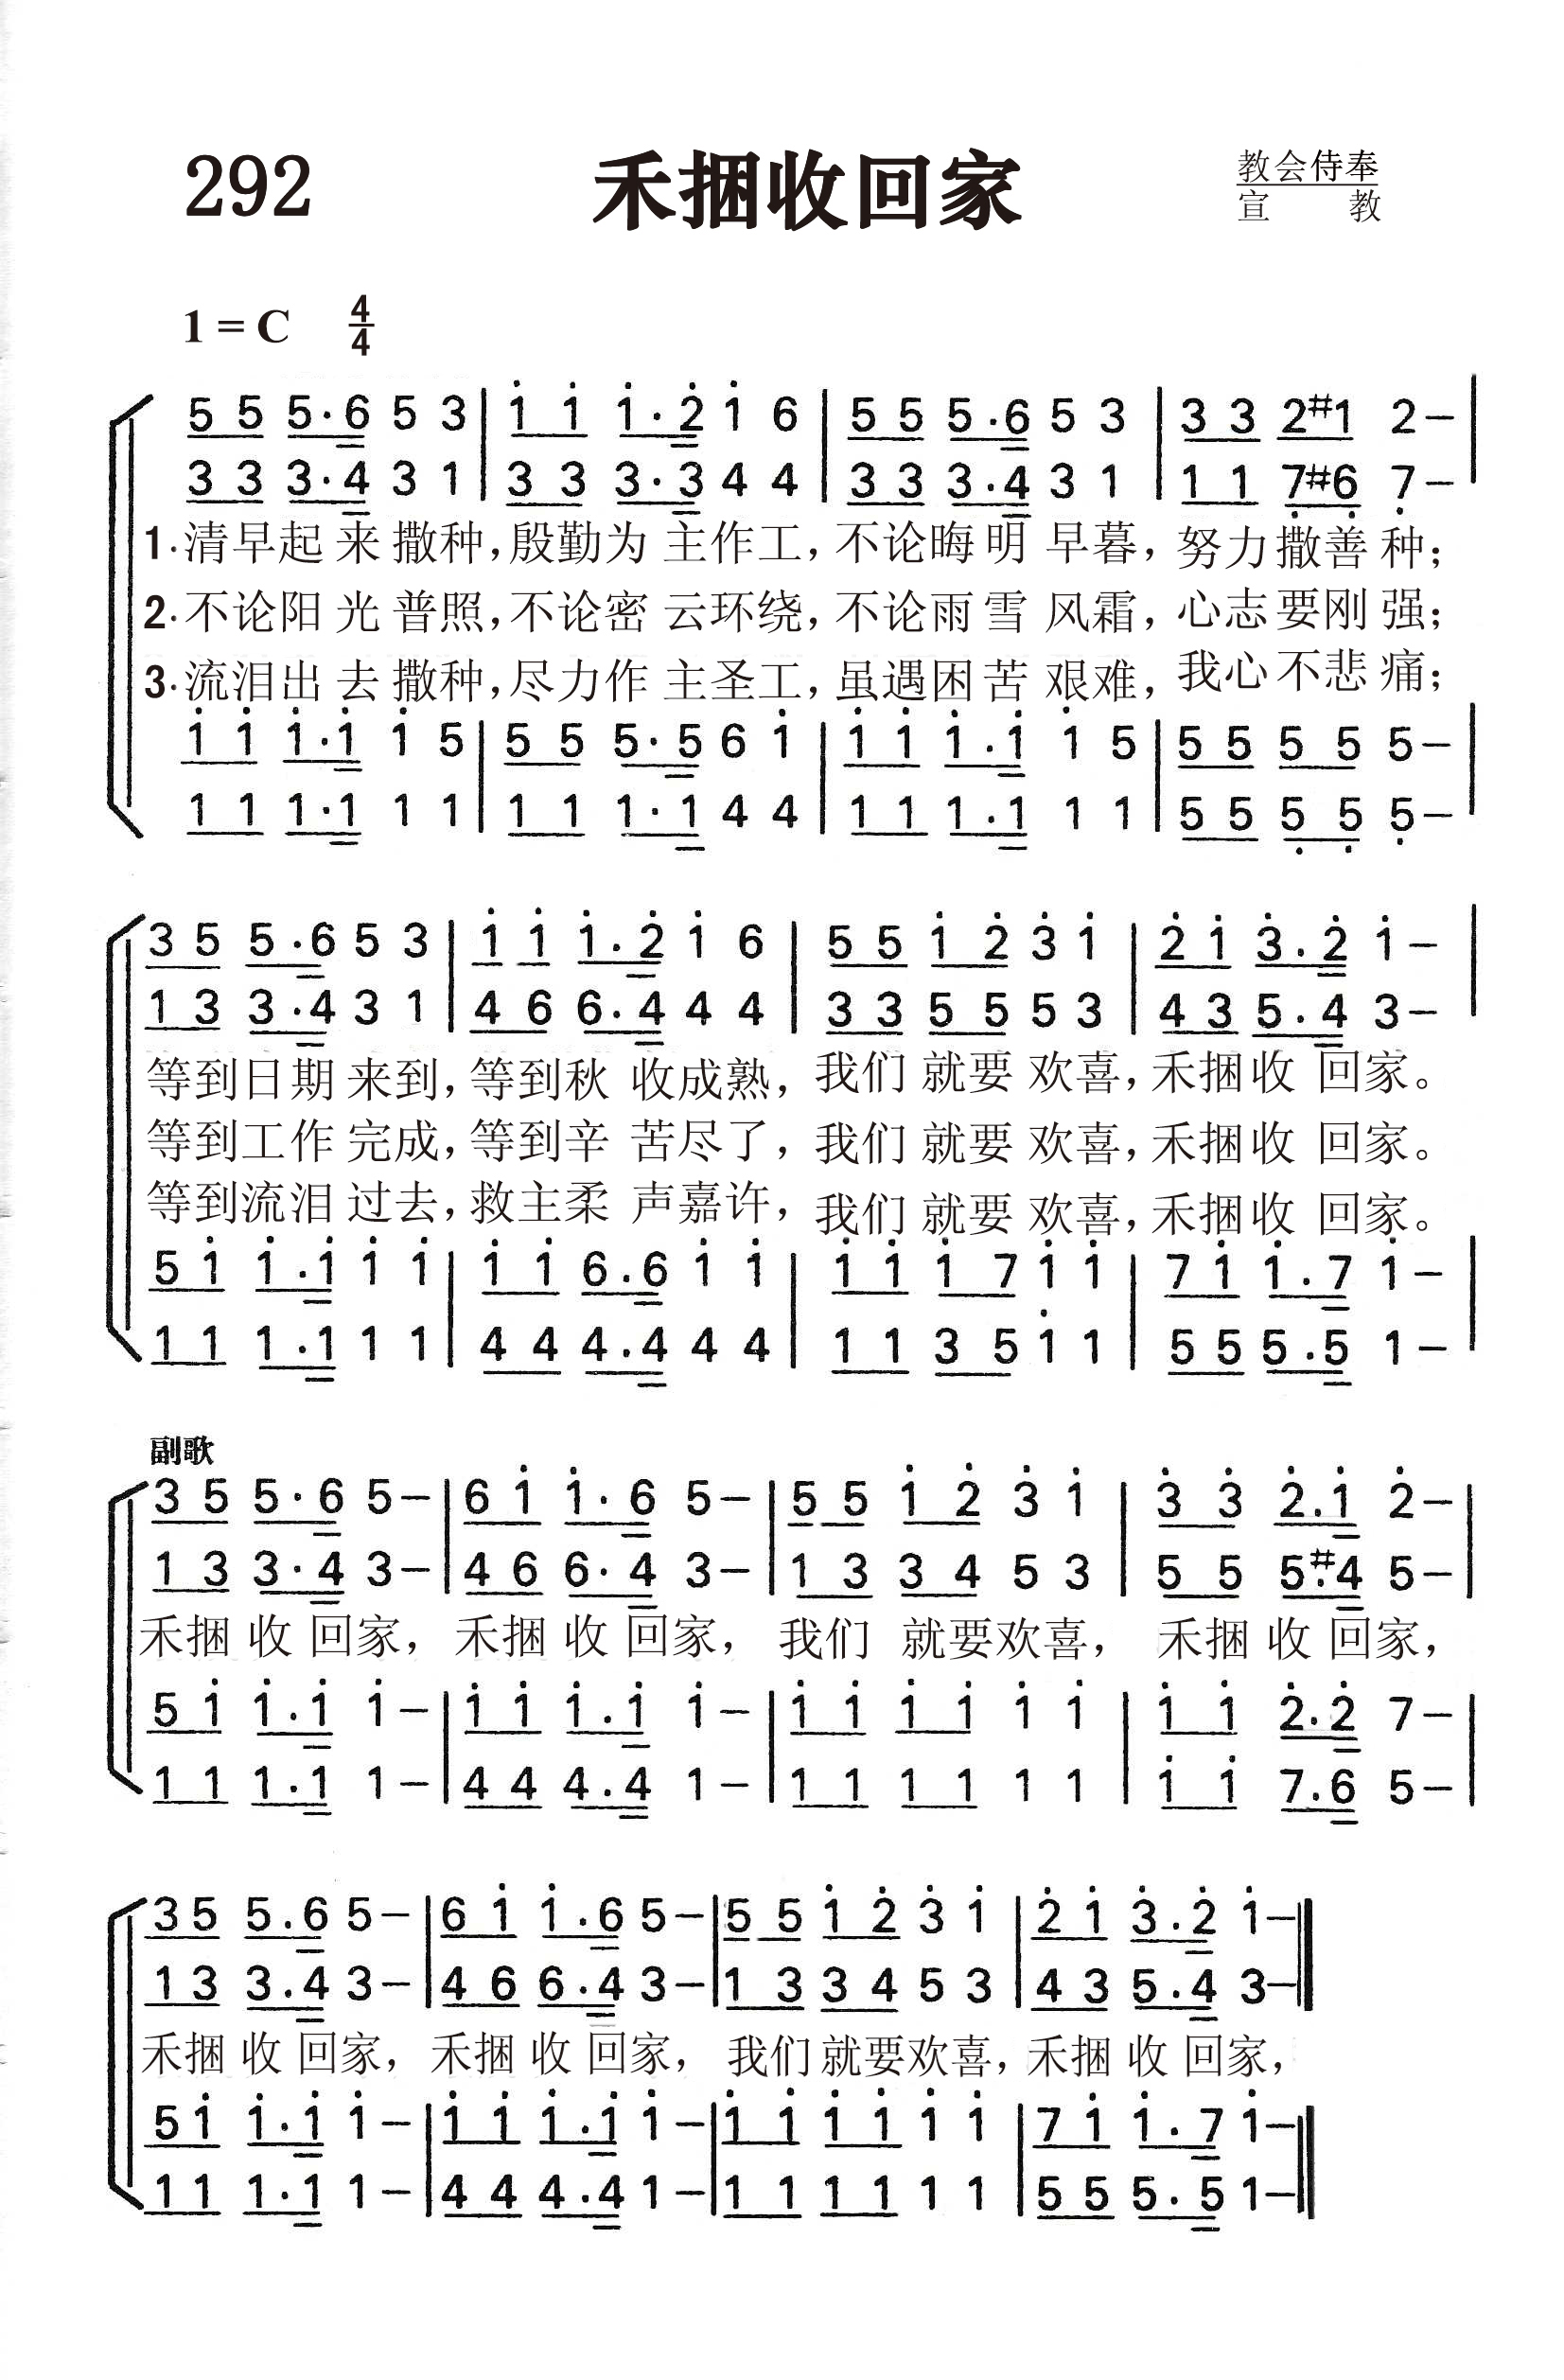 292 禾捆收回家 教会侍奉
宣 教
1 = C 4/4
5 5 5·6 5 3 | i i i·2̇ i 6 | 5 5 5·6 5 3 | 3 3 2#1 2– |
3 3 3·4 3 1 | 3 3 3·3 4 4 | 3 3 3·4 3 1 | 1 1 7̣#6̣ 7̣– |
1·清早起 来 撒种,殷勤为 主作工,不论晦明 早暮,努力撒善种;
2·不论阳 光 普照,不论密 云环绕,不论雨雪 风霜,心志要刚强;
3·流泪出 去 撒种,尽力作 主圣工,虽遇困苦 艰难,我心不悲痛;
i i i·i i 5 | 5 5 5·5 6 i | i i i·i i 5 | 5 5 5 5 5– |
1 1 1·1 1 1 | 1 1 1·1 4 4 | 1 1 1·1 1 1 | 5 5 5̣ 5̣ 5̣– |
3 5 5·6 5 3 | i i i·2̇ i 6 | 5 5 i 2̇ 3̇ i | 2̇ i 3̇·2̇ i– |
1 3 3·4 3 1 | 4 6 6·4 4 4 | 3 3 5 5 5 3 | 4 3 5·4 3– |
等到日期 来到,等到秋 收成熟,我们 就要 欢喜,禾捆收 回家。
等到工作 完成,等到辛 苦尽了,我们 就要 欢喜,禾捆收 回家。
等到流泪 过去,救主柔 声嘉许,我们 就要 欢喜,禾捆收 回家。
5 i i·i i i | i i 6·6 i i | i i i 7 i i | 7 i i·7 i– |
1 1 1·1 1 1 | 4 4 4·4 4 4 | 1 1 3 5 i 1 | 5 5 5·5 1– |
副歌
3 5 5·6 5– | 6 i i·6 5– | 5 5 i 2̇ 3̇ i | 3̇ 3̇ 2̇·i 2̇– |
1 3 3·4 3– | 4 6 6·4 3– | 1 3 3 4 5 3 | 5 5 5·#4 5– |
禾捆 收 回家, 禾捆 收 回家, 我们 就要欢喜, 禾捆 收 回家,
5 i i·i i– | i i i·i i– | i i i i i i | i i 2̇·2̇ 7– |
1 1 1·1 1– | 4 4 4·4 1– | 1 1 1 1 1 1 | i i 7·6 5– |
3 5 5·6 5– | 6 i i·6 5– | 5 5 i 2̇ 3̇ i | 2̇ i 3̇·2̇ i–
1 3 3·4 3– | 4 6 6·4 3– | 1 3 3 4 5 3 | 4 3 5·4 3–
禾捆 收 回家, 禾捆 收 回家, 我们 就要欢喜,禾捆 收 回家,
5 i i·i i– | i i i·i i– | i i i i i i | 7 i i·7 i–
1 1 1·1 1– | 4 4 4·4 1– | 1 1 1 1 1 1 | 5 5 5·5 1–